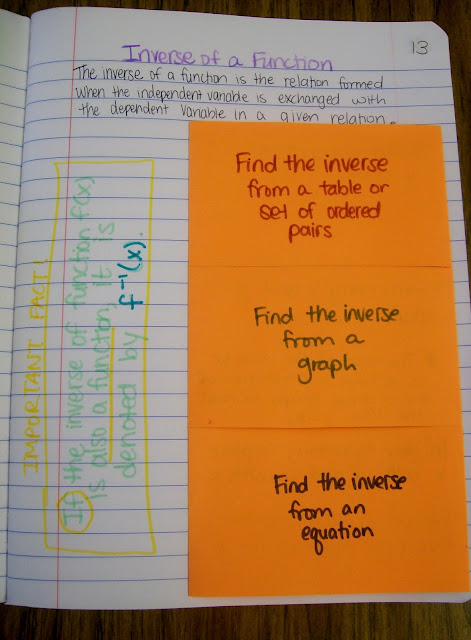 13
Inverse of a Function
The inverse of a function is the relation formed
when the independent variable is exchanged with
the dependent variable in a given relation.
IMPORTANT FACT!
If the inverse of function f(x)
is also a function, it is
denoted by f⁻¹(x).
Find the inverse
from a table or
set of ordered
pairs
Find the inverse
from a
graph
Find the inverse
from an
equation